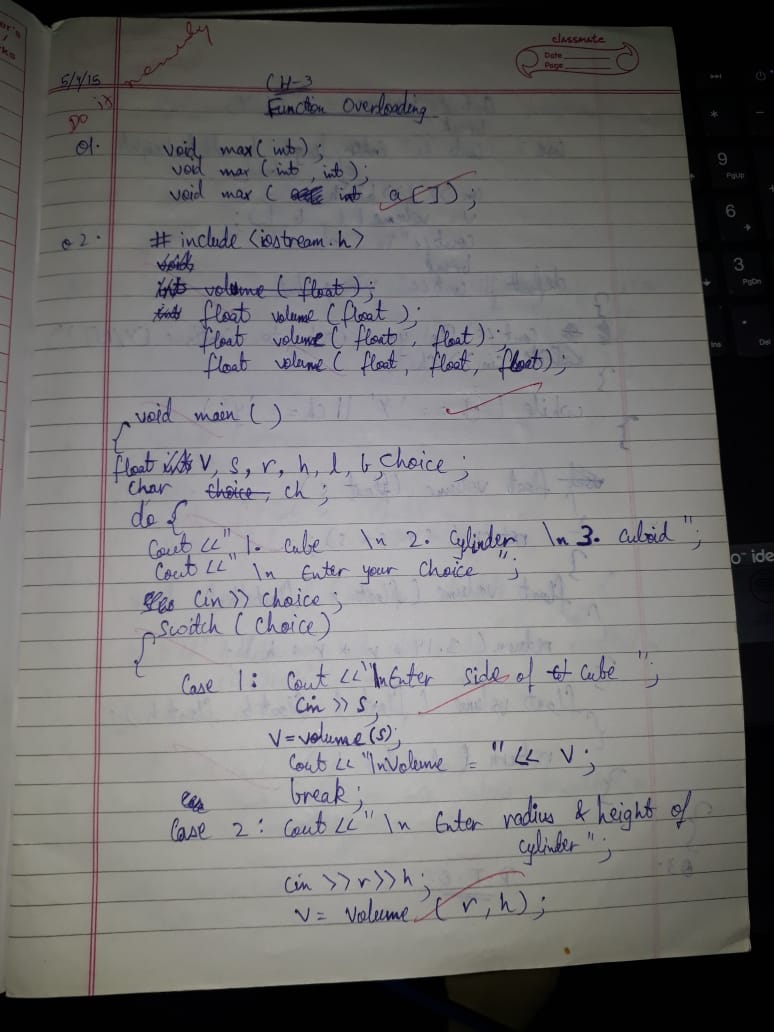 classmate
Date
Page
5/4/15
neatly
Do it
CH-3
Function Overloading
Q1. void max(int);
void max (int, int);
void max ( int a[]);
Q2. # include <iostream.h>
void
int volume ( float );
int float volume (float );
float volume ( float, float);
float volume ( float, float, float);
void main ( )
{
float ints V, s, r, h, l, b, choice;
char choice, ch;
do {
Cout <<" 1. cube \n 2. Cylinder \n 3. cuboid ";
Cout <<" \n Enter your choice ";
Cin >> choice;
Switch ( choice)
{
Case 1: Cout <<"\nEnter side of cube ";
Cin >> s;
V=volume(s);
Cout << "\nVolume = " << V;
break;
Case 2: Cout <<" \n Enter radius & height of
cylinder";
Cin >>r>>h;
V= Volume ( r, h);
9
PgUp
6
3
PgDn
Ins
Del
ide